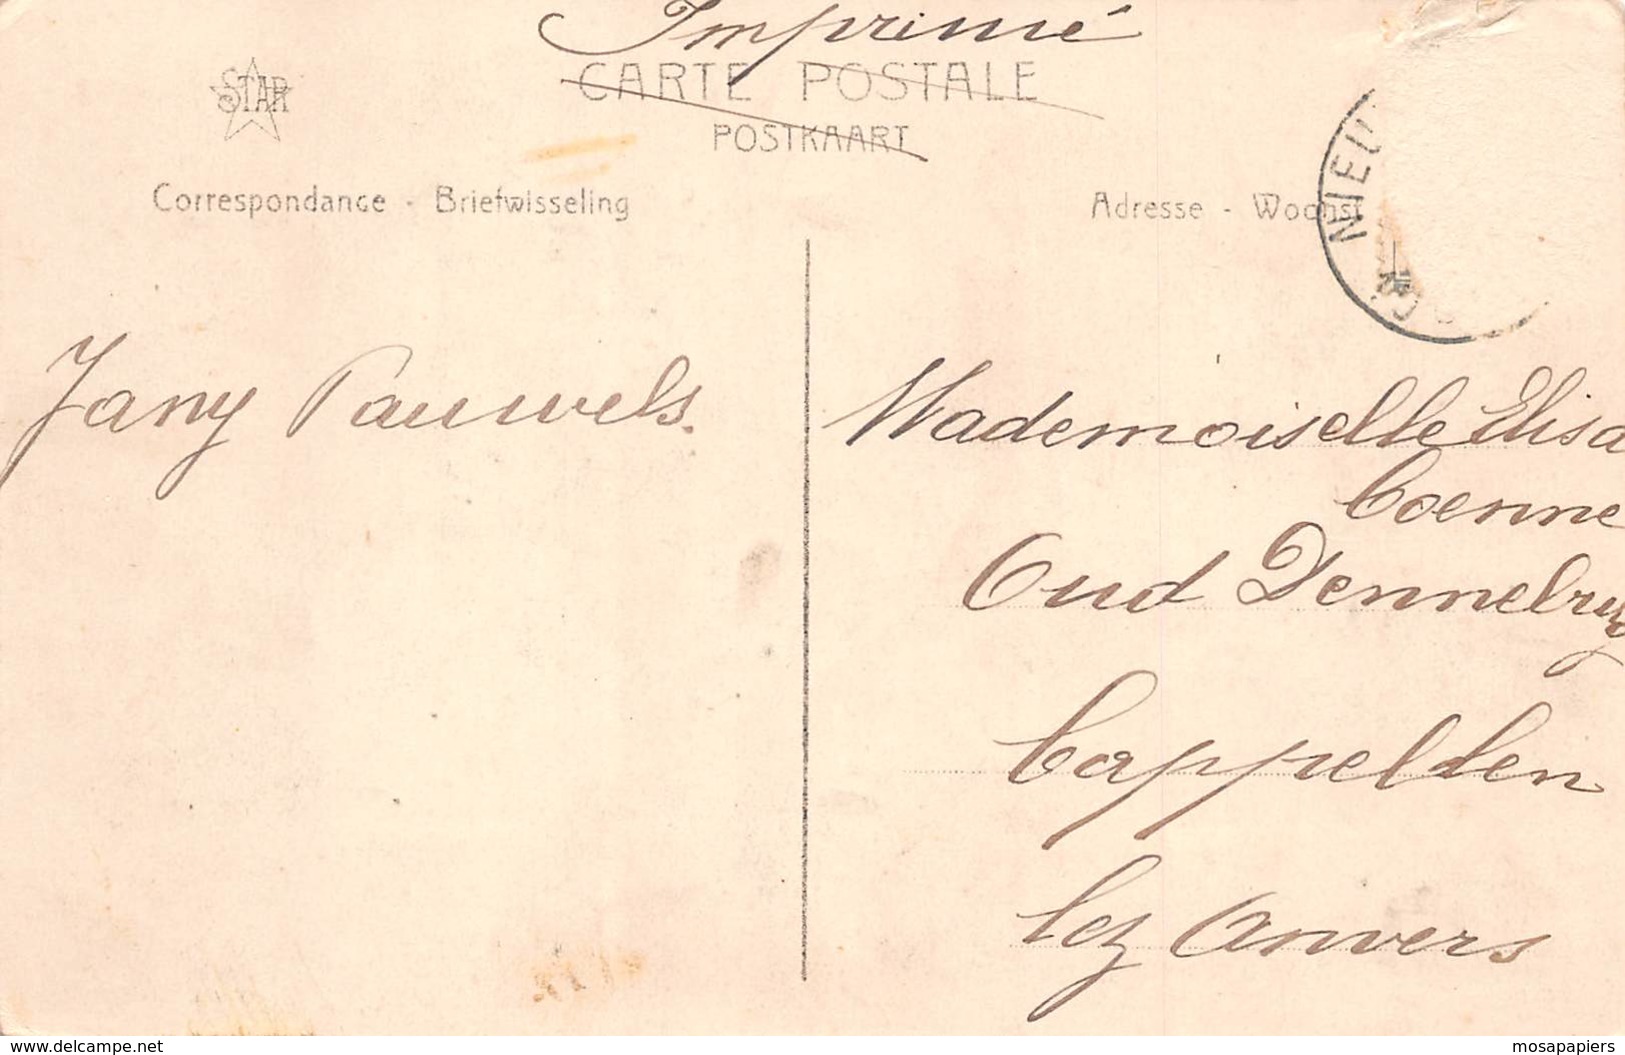 Imprimé
STAR
CARTE POSTALE
POSTKAART
Correspondance - Briefwisseling
Adresse - Woonst
NIEU
Jany Pauwels.
Mademoiselle Elisa
Coenne
Oud Dennebrug
Cappellen
lez Anvers
www.delcampe.net
mosapapiers